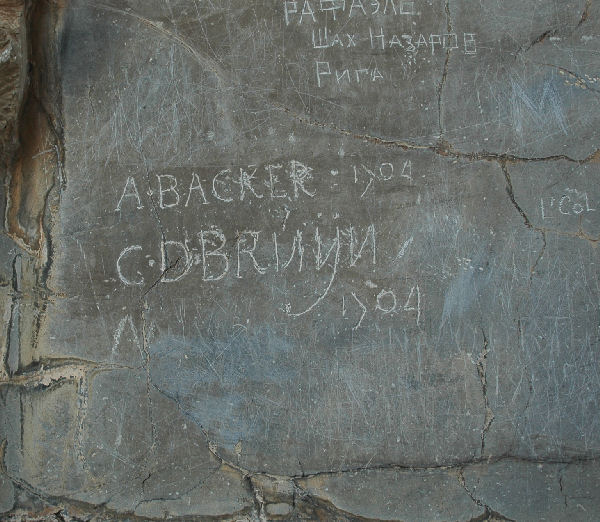 РАФАЭЛЬ
ШАХ-НАЗАРОВ
РИГА
A·BACKER· 1904
C·D·BRUIJN
1904